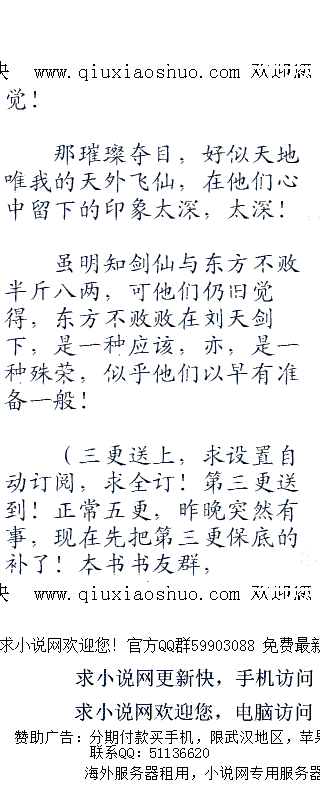 快 www.qiuxiaoshuo.com 欢迎您
觉！
那璀璨夺目，好似天地
唯我的天外飞仙，在他们心
中留下的印象太深，太深！
虽明知剑仙与东方不败
半斤八两，可他们仍旧觉
得，东方不败败在刘天剑
下，是一种应该，亦，是一
种殊荣，似乎他们以早有准
备一般！
（三更送上，求设置自
动订阅，求全订！第三更送
到！正常五更，昨晚突然有
事，现在先把第三更保底的
补了！本书书友群，
快 www.qiuxiaoshuo.com 欢迎您
求小说网欢迎您！官方QQ群59903088 免费最新
求小说网更新快，手机访问
求小说网欢迎您，电脑访问
赞助广告：分期付款买手机，限武汉地区，苹果
联系QQ：51136620
海外服务器租用，小说网专用服务器